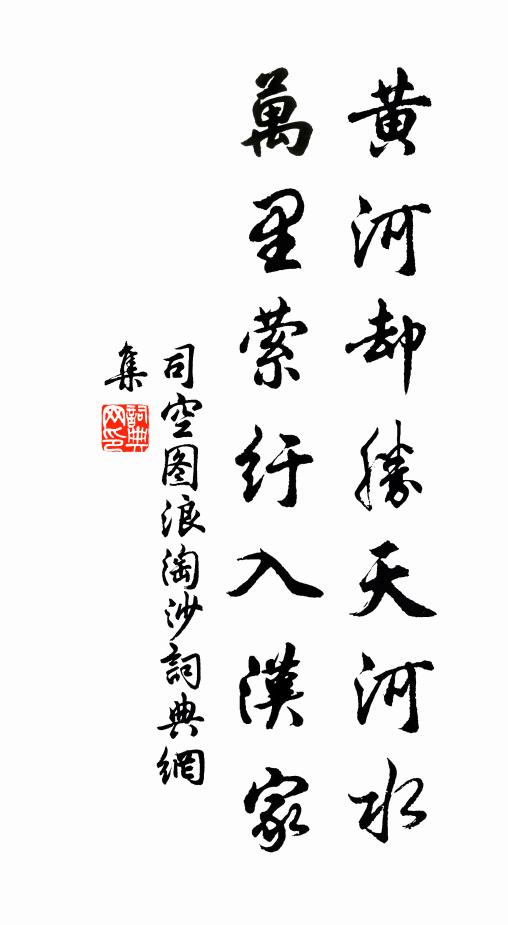 黄河却勝天河水
萬里萦纡入漢家
司空图浪淘沙詞典網
集
詞典网印